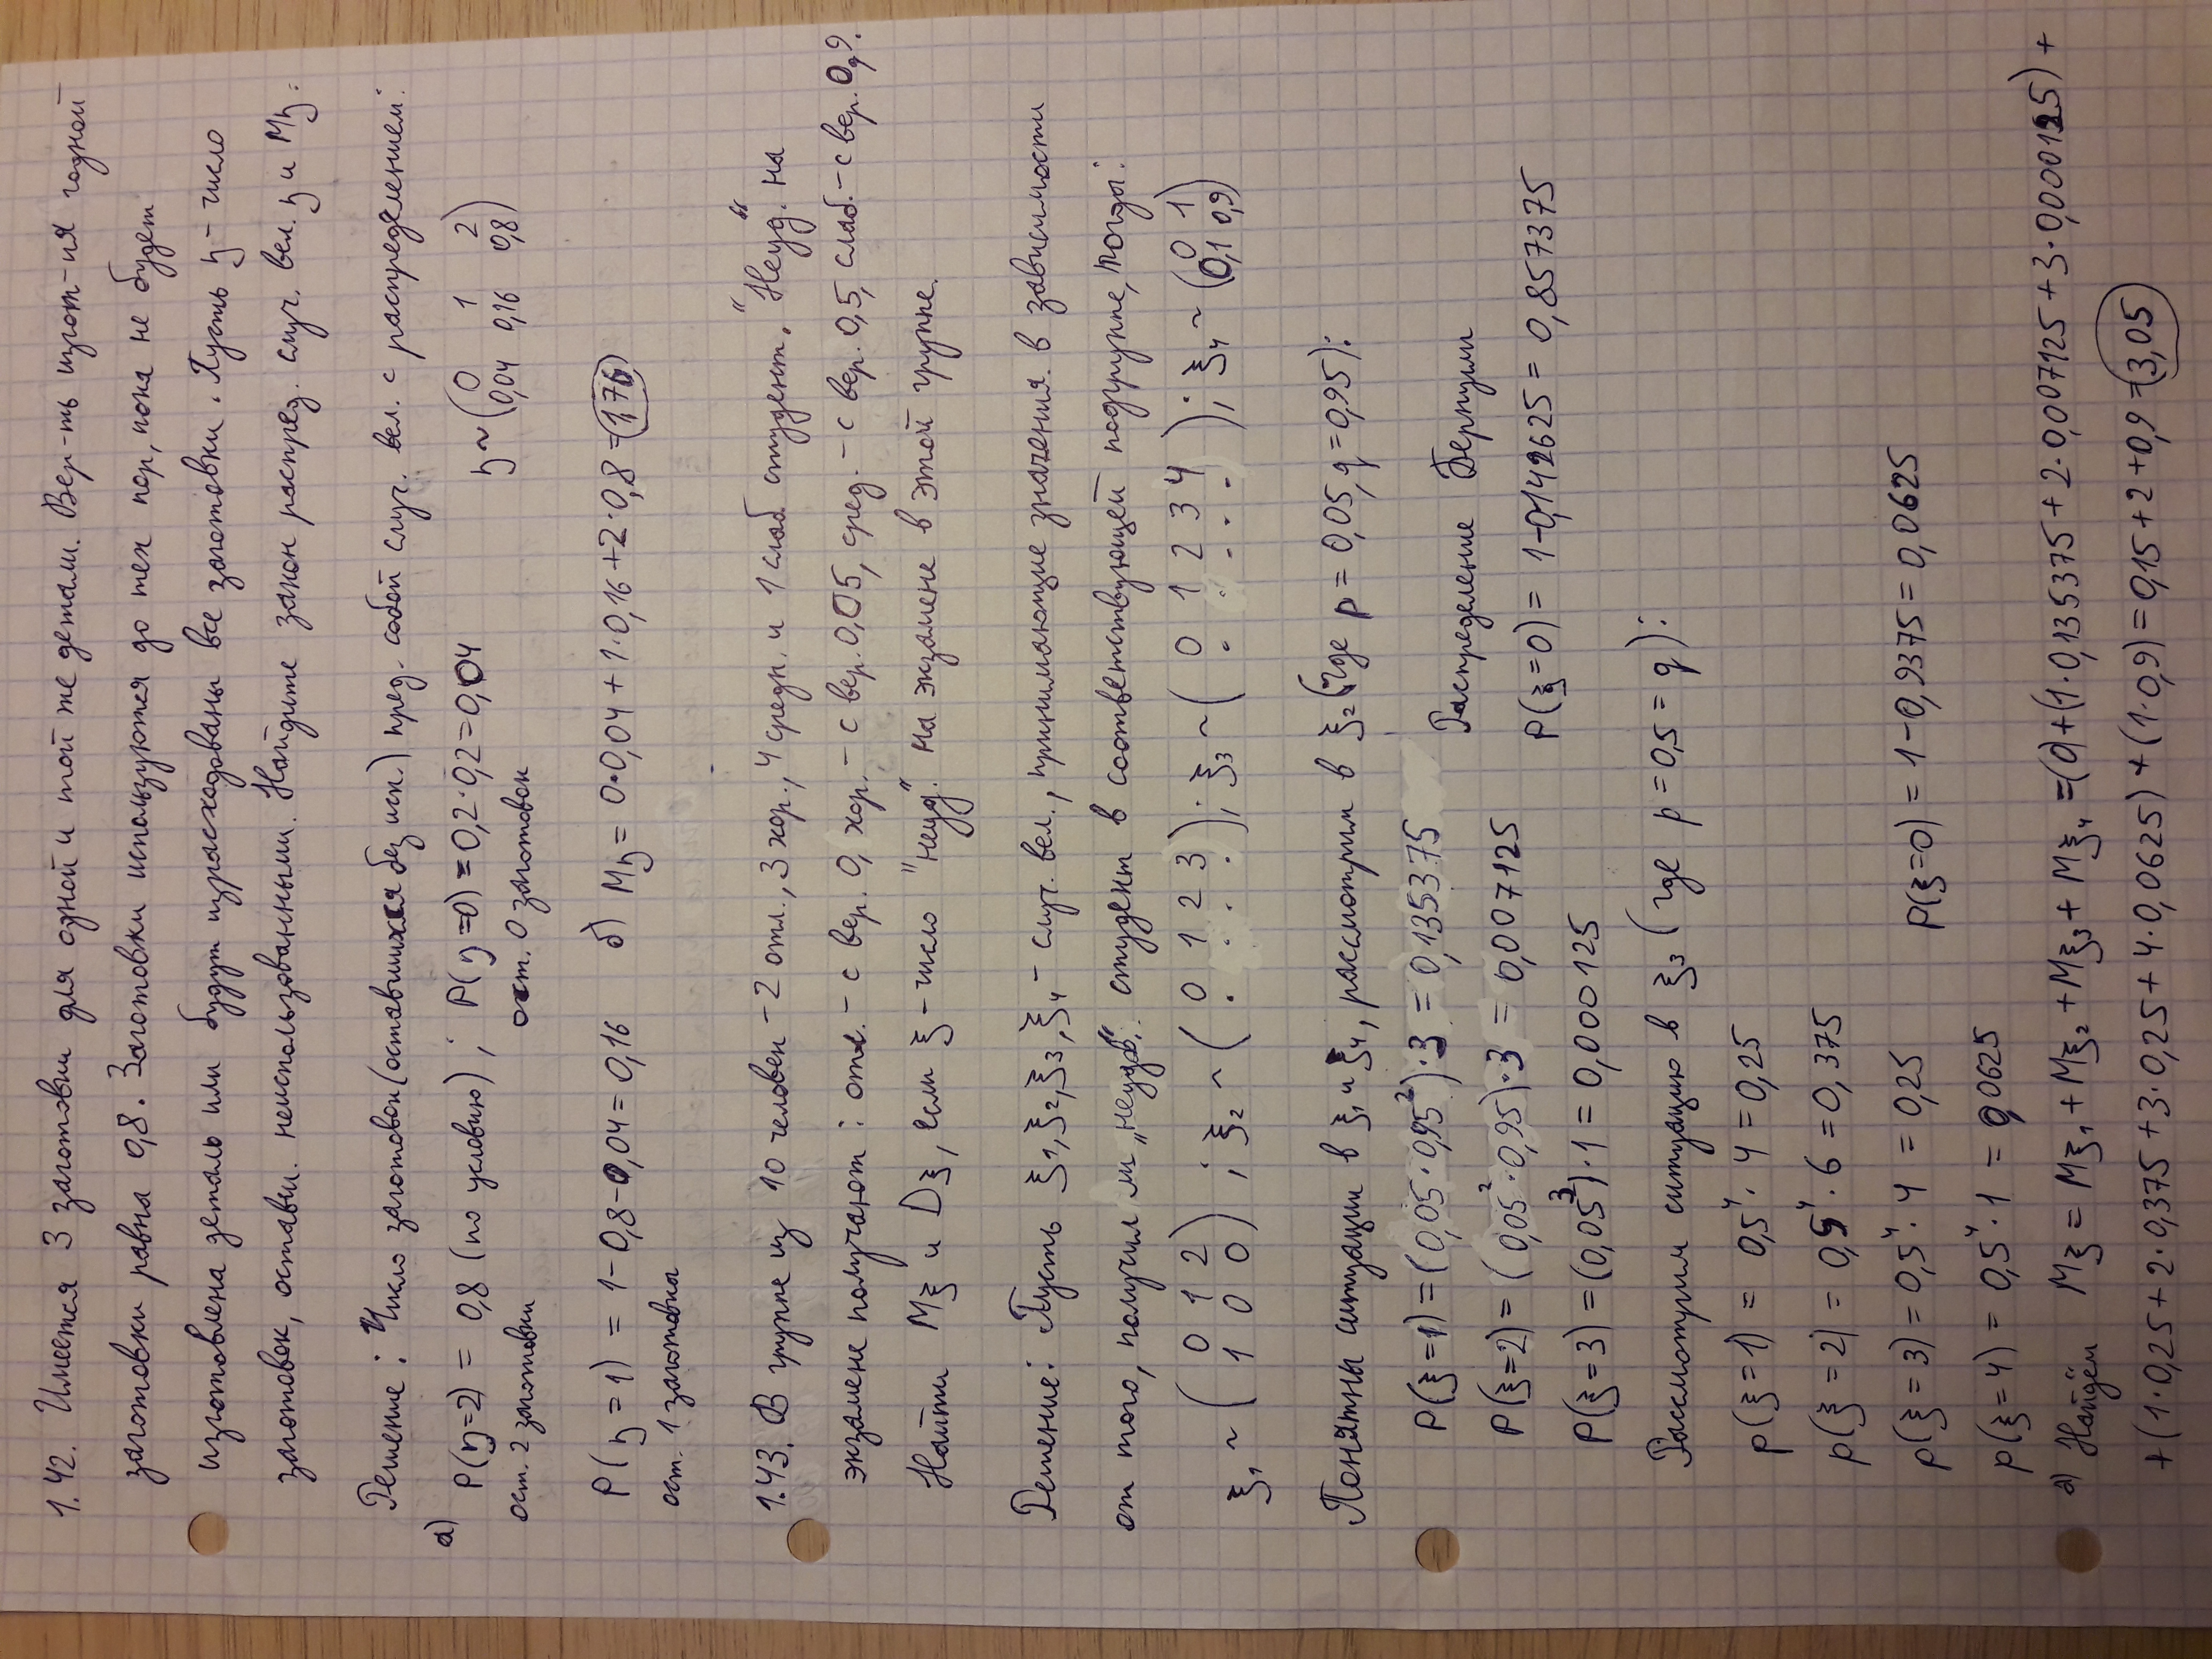 1.42. Имеется 3 заготовки для одной и той же детали. Вер-ть изгот-ия годной
заготовки равна 0,8. Заготовки используются до тех пор, пока не будет
изготовлена деталь или будут израсходованы все заготовки. Пусть η - число
заготовок, оставш. неиспользованными. Найдите закон распред. случ. вел. η и Mη.
Решение: Число заготовок (оставшихся без исп.) пред. собой случ. вел. с распределением:
а) P(η=2) = 0,8 (по условию); P(η=0) = 0,2·0,2 = 0,04 η ~ (0 1 2
0,04 0,16 0,8)
ост. 2 заготовки ост. 0 заготовок
P(η=1) = 1-0,8-0,04 = 0,16 б) Mη = 0·0,04 + 1·0,16 + 2·0,8 = 1,76
ост. 1 заготовка
1.43. В группе из 10 человек - 2 отл., 3 хор., 4 средн. и 1 слаб. студент. "Неуд." на
экзамене получают: отл. - с вер. 0, хор. - с вер. 0,05, сред. - с вер. 0,5, слаб. - с вер. 0,9.
Найти Mξ и Dξ, если ξ - число "неуд." на экзамене в этой группе.
Решение: Пусть ξ₁, ξ₂, ξ₃, ξ₄ - случ. вел., принимающие значения в зависимости
от того, получил ли „неудов." студент в соответствующей подгруппе, тогда:
ξ₁ ~ (0 1 2
1 0 0) ; ξ₂ ~ (0 1 2 3
· · · ·) ; ξ₃ ~ (0 1 2 3 4
· · · · ·) ; ξ₄ ~ (0 1
0,1 0,9)
Понятны ситуации в ξ₁ и ξ₄, рассмотрим в ξ₂ (где p = 0,05, q = 0,95):
P(ξ=1) = (0,05·0,95²)·3 = 0,135375
Распределение Бернулли
P(ξ=2) = (0,05²·0,95)·3 = 0,007125
P(ξ=0) = 1-0,142625 = 0,857375
P(ξ=3) = (0,05³)·1 = 0,000125
Рассмотрим ситуацию в ξ₃ (где p = 0,5 = q):
p(ξ=1) = 0,5⁴·4 = 0,25
p(ξ=2) = 0,5⁴·6 = 0,375
p(ξ=3) = 0,5⁴·4 = 0,25 P(ξ=0) = 1-0,9375 = 0,0625
p(ξ=4) = 0,5⁴·1 = 0,0625
а) Найдём Mξ = Mξ₁ + Mξ₂ + Mξ₃ + Mξ₄ = (0) + (1·0,135375 + 2·0,007125 + 3·0,000125) +
+ (1·0,25 + 2·0,375 + 3·0,25 + 4·0,0625) + (1·0,9) = 0,15 + 2 + 0,9 = 3,05